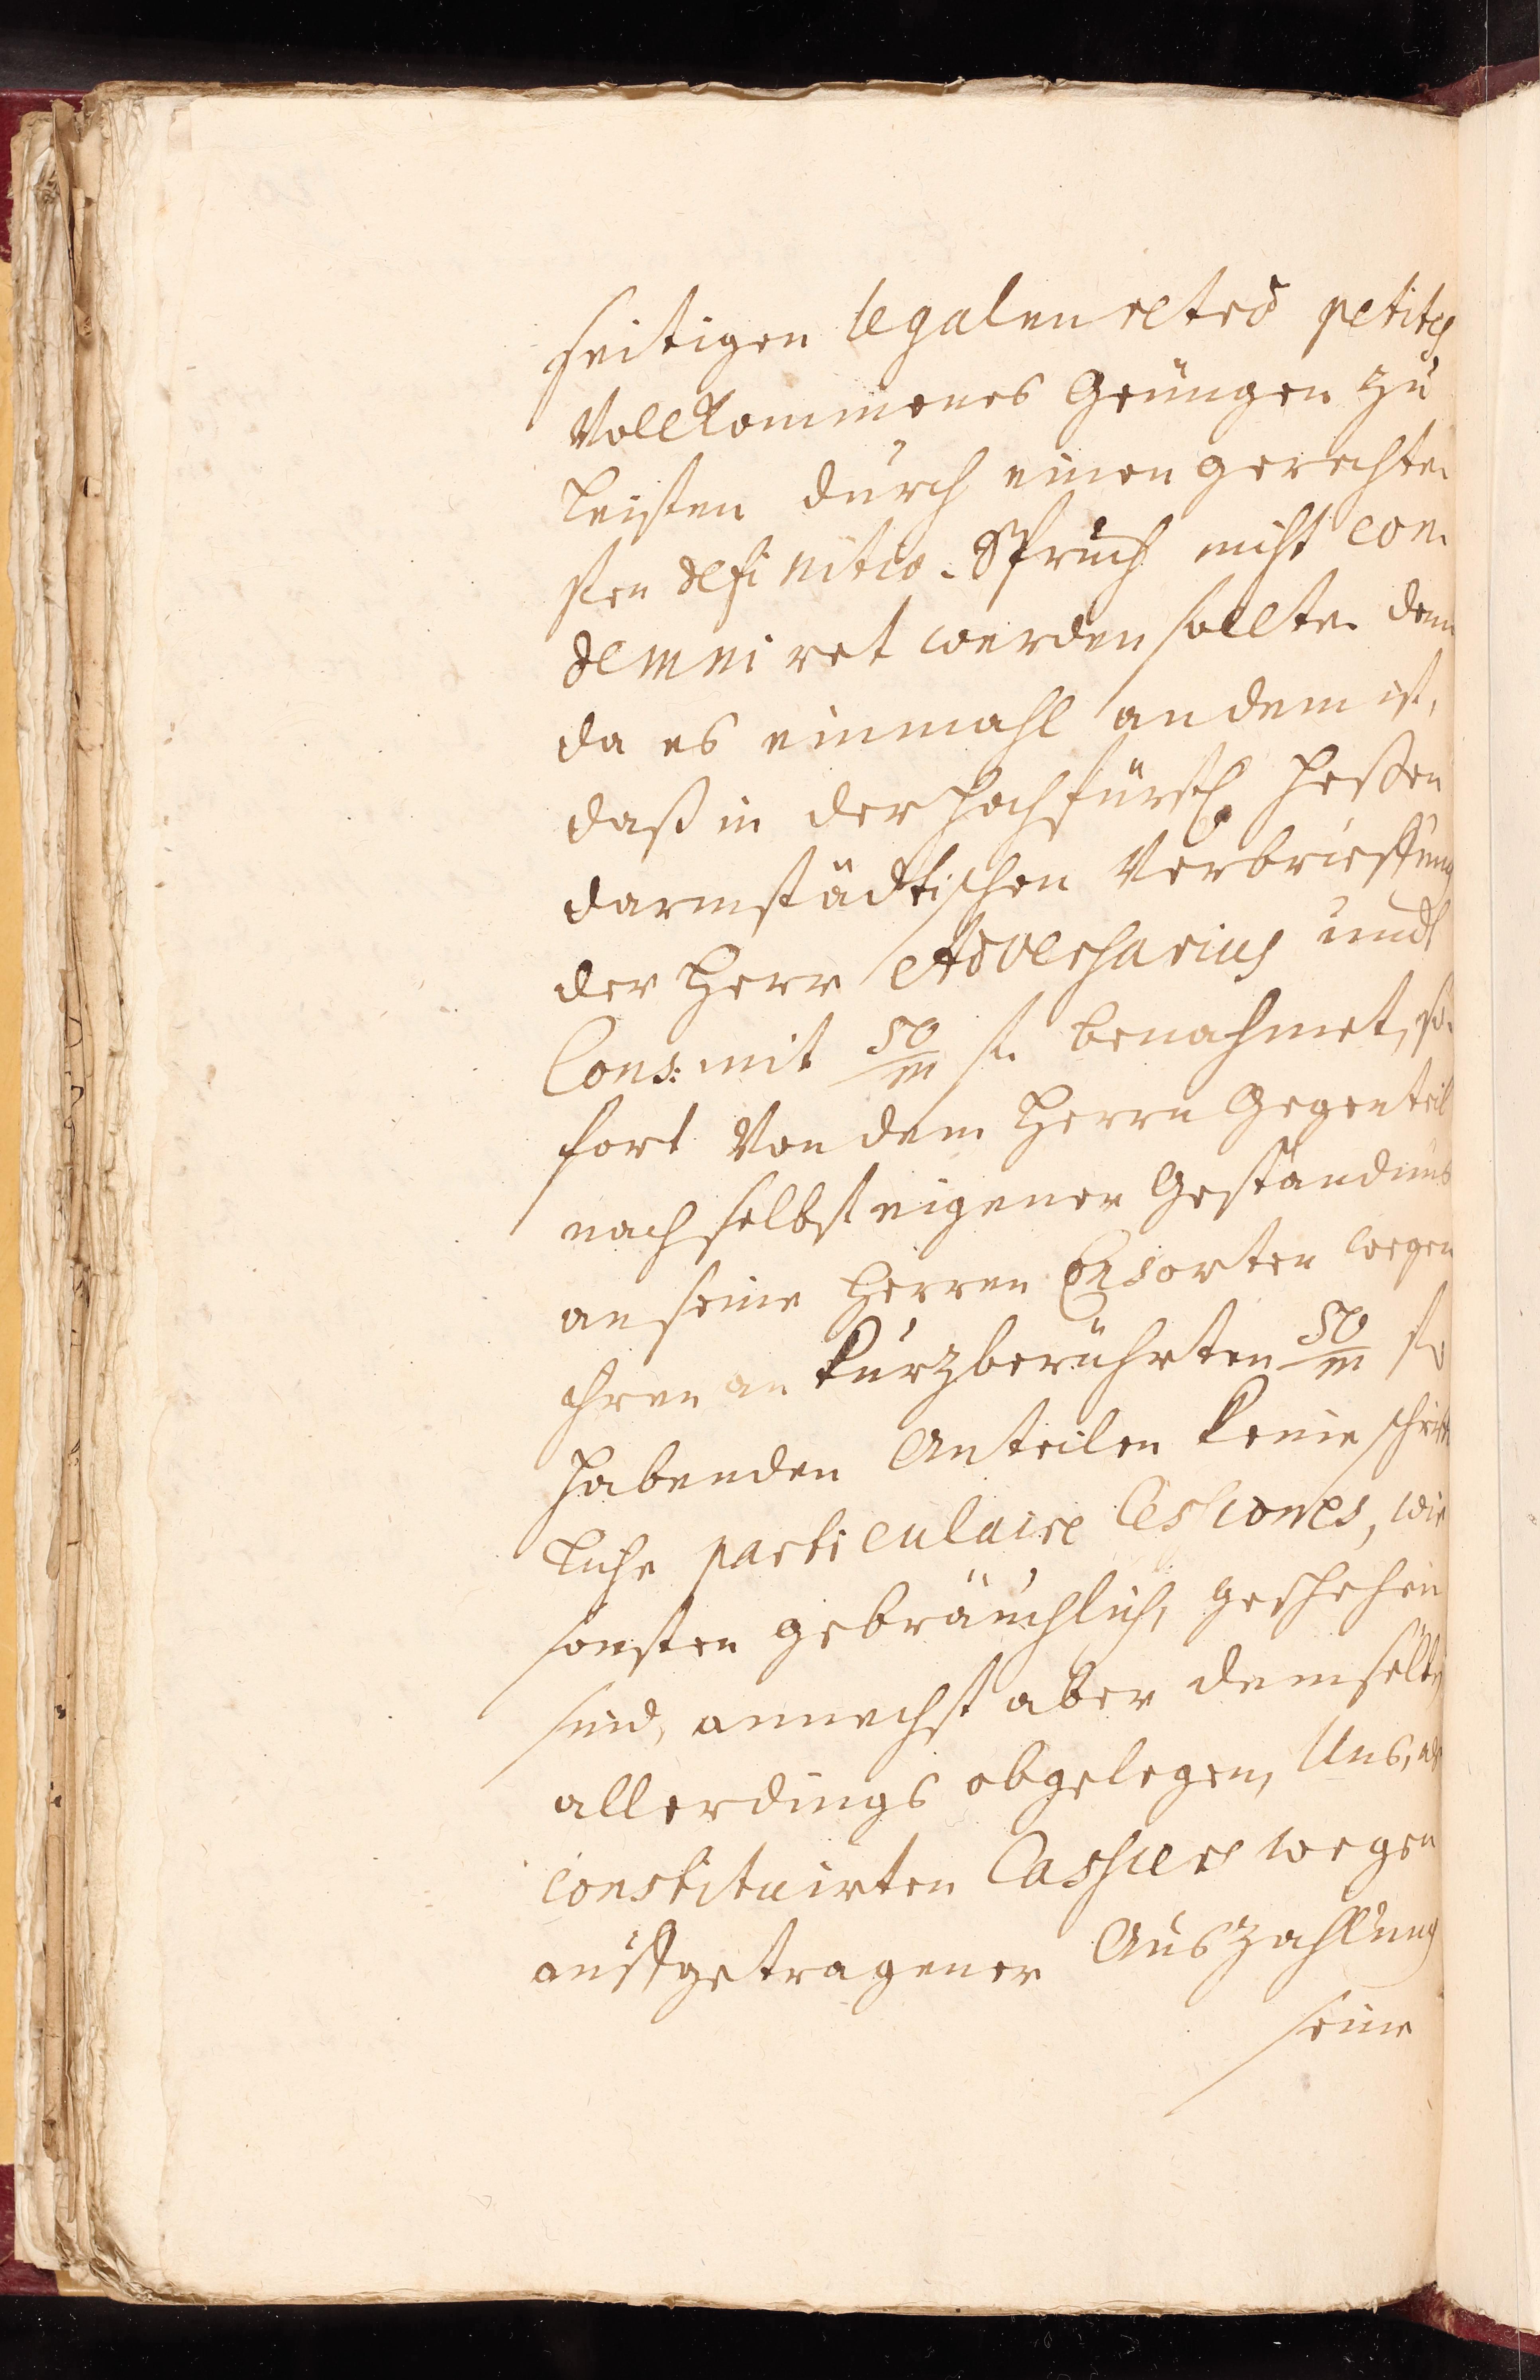 seitigen legalen retro petitis
Vollkommenes Genüngen zu
leisten durch einen gerechte-
sten definitiv-Spruch nicht con-
demniret werden sollte. denn
da es einmahl an dem ist,
daß in der Hochfürstl. Heßen
darmstädtischen Verbrieffung
der Herr Adversarius undt
Cons: mit 50/m fl. benahmet, so-
fort Von dem Herrn Gegenteil
nach selbst eigener Geständnus
an seine Herren Consorten wegen
ihren an kurzberührten 50/m fl.
habenden Anteilen keine schrifft-
liche particulaire Cessiones, wie
sonsten gebräuchlich, geschehen
sind, annechst aber demselben
allerdings obgelegen, Uns, als
constituirten Cassiers wegen
auffgetragener Auszahlung
seine